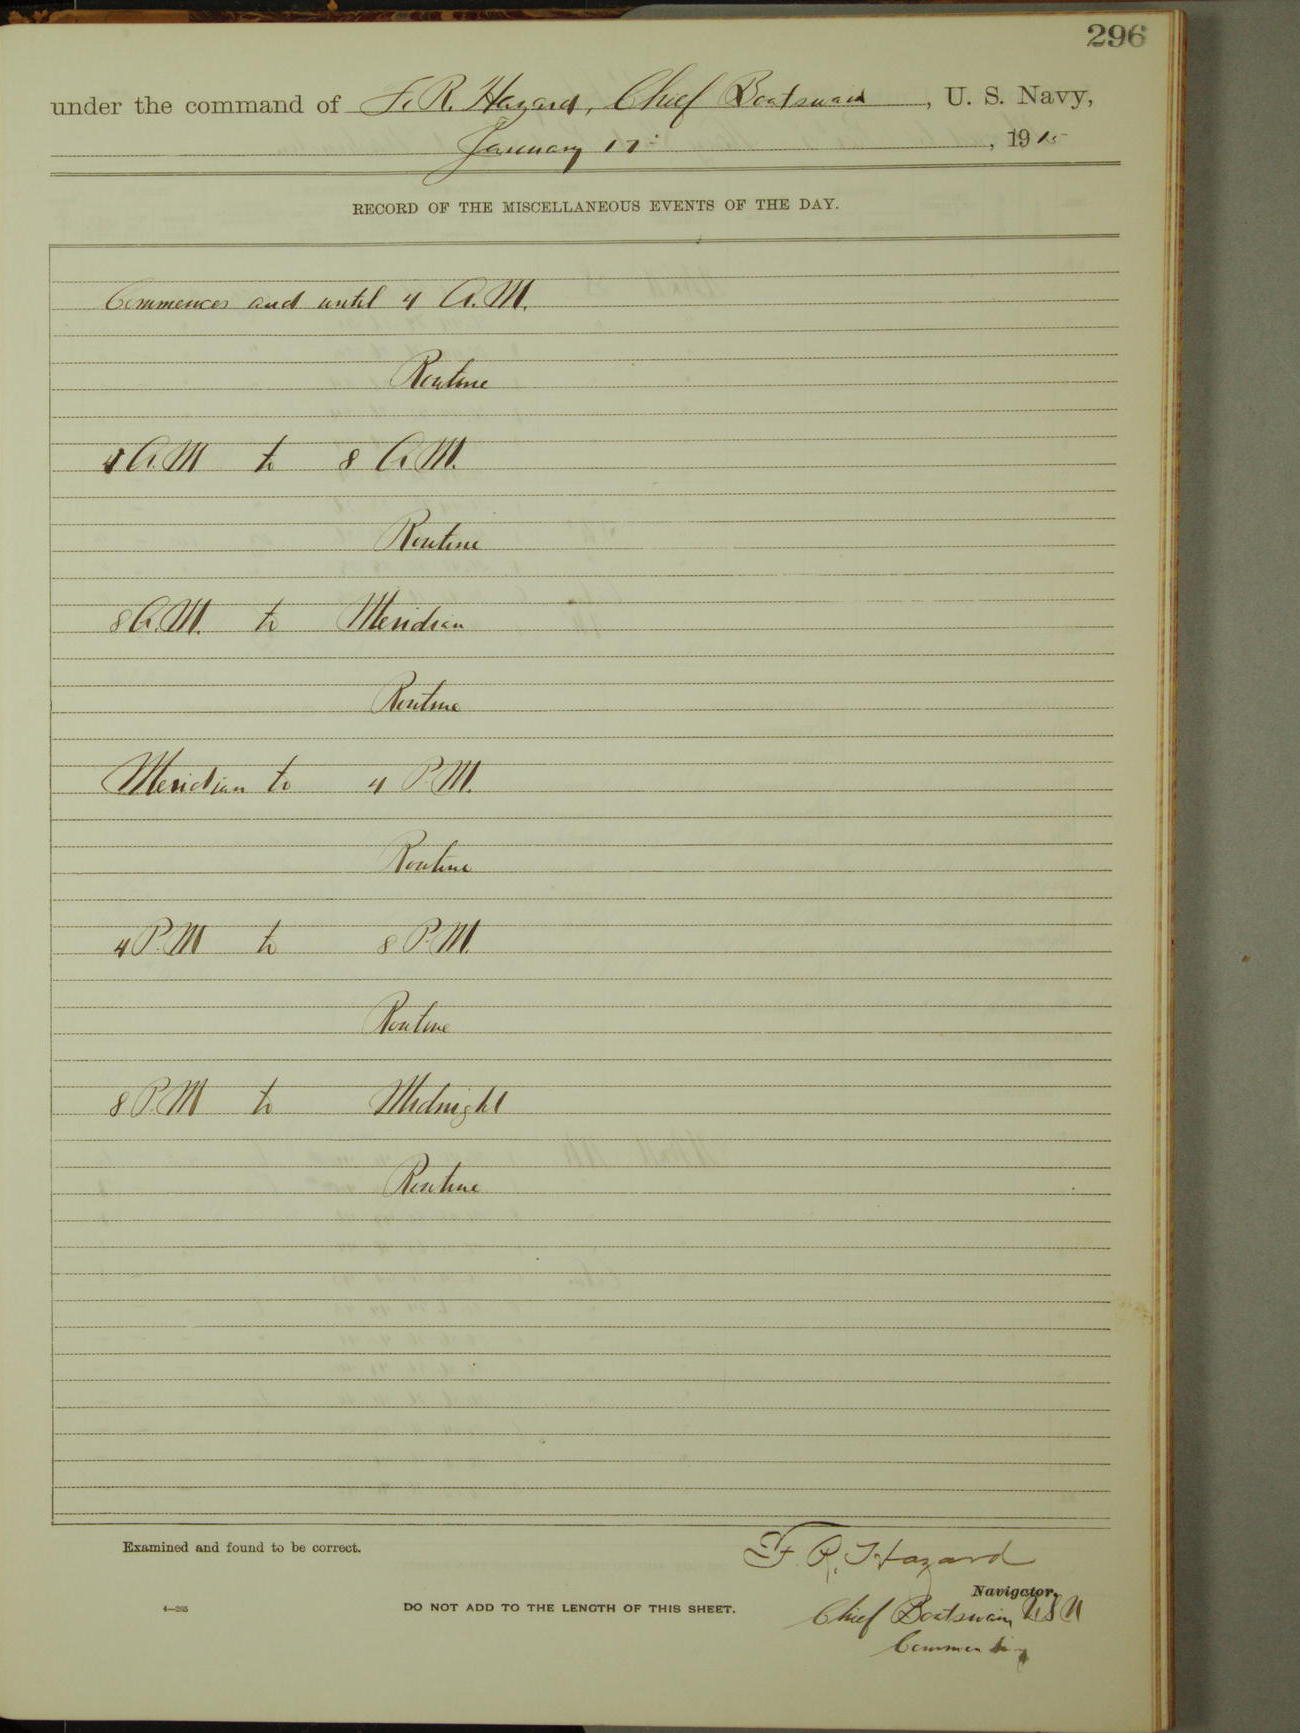 296
under the command of F. R. Hazard, Chief Boatswain, U. S. Navy,
January 17, 1915
RECORD OF THE MISCELLANEOUS EVENTS OF THE DAY.
Commences and until 4 A.M.
Routine
4 A.M to 8 A.M.
Routine
8 A.M. to Meridian
Routine
Meridian to 4 P.M.
Routine
4 P.M to 8 P.M.
Routine
8 P.M to Midnight
Routine
Examined and found to be correct.
F. R. Hazard
Navigator.
4—265 DO NOT ADD TO THE LENGTH OF THIS SHEET.
Chief Boatswain USN
Commanding